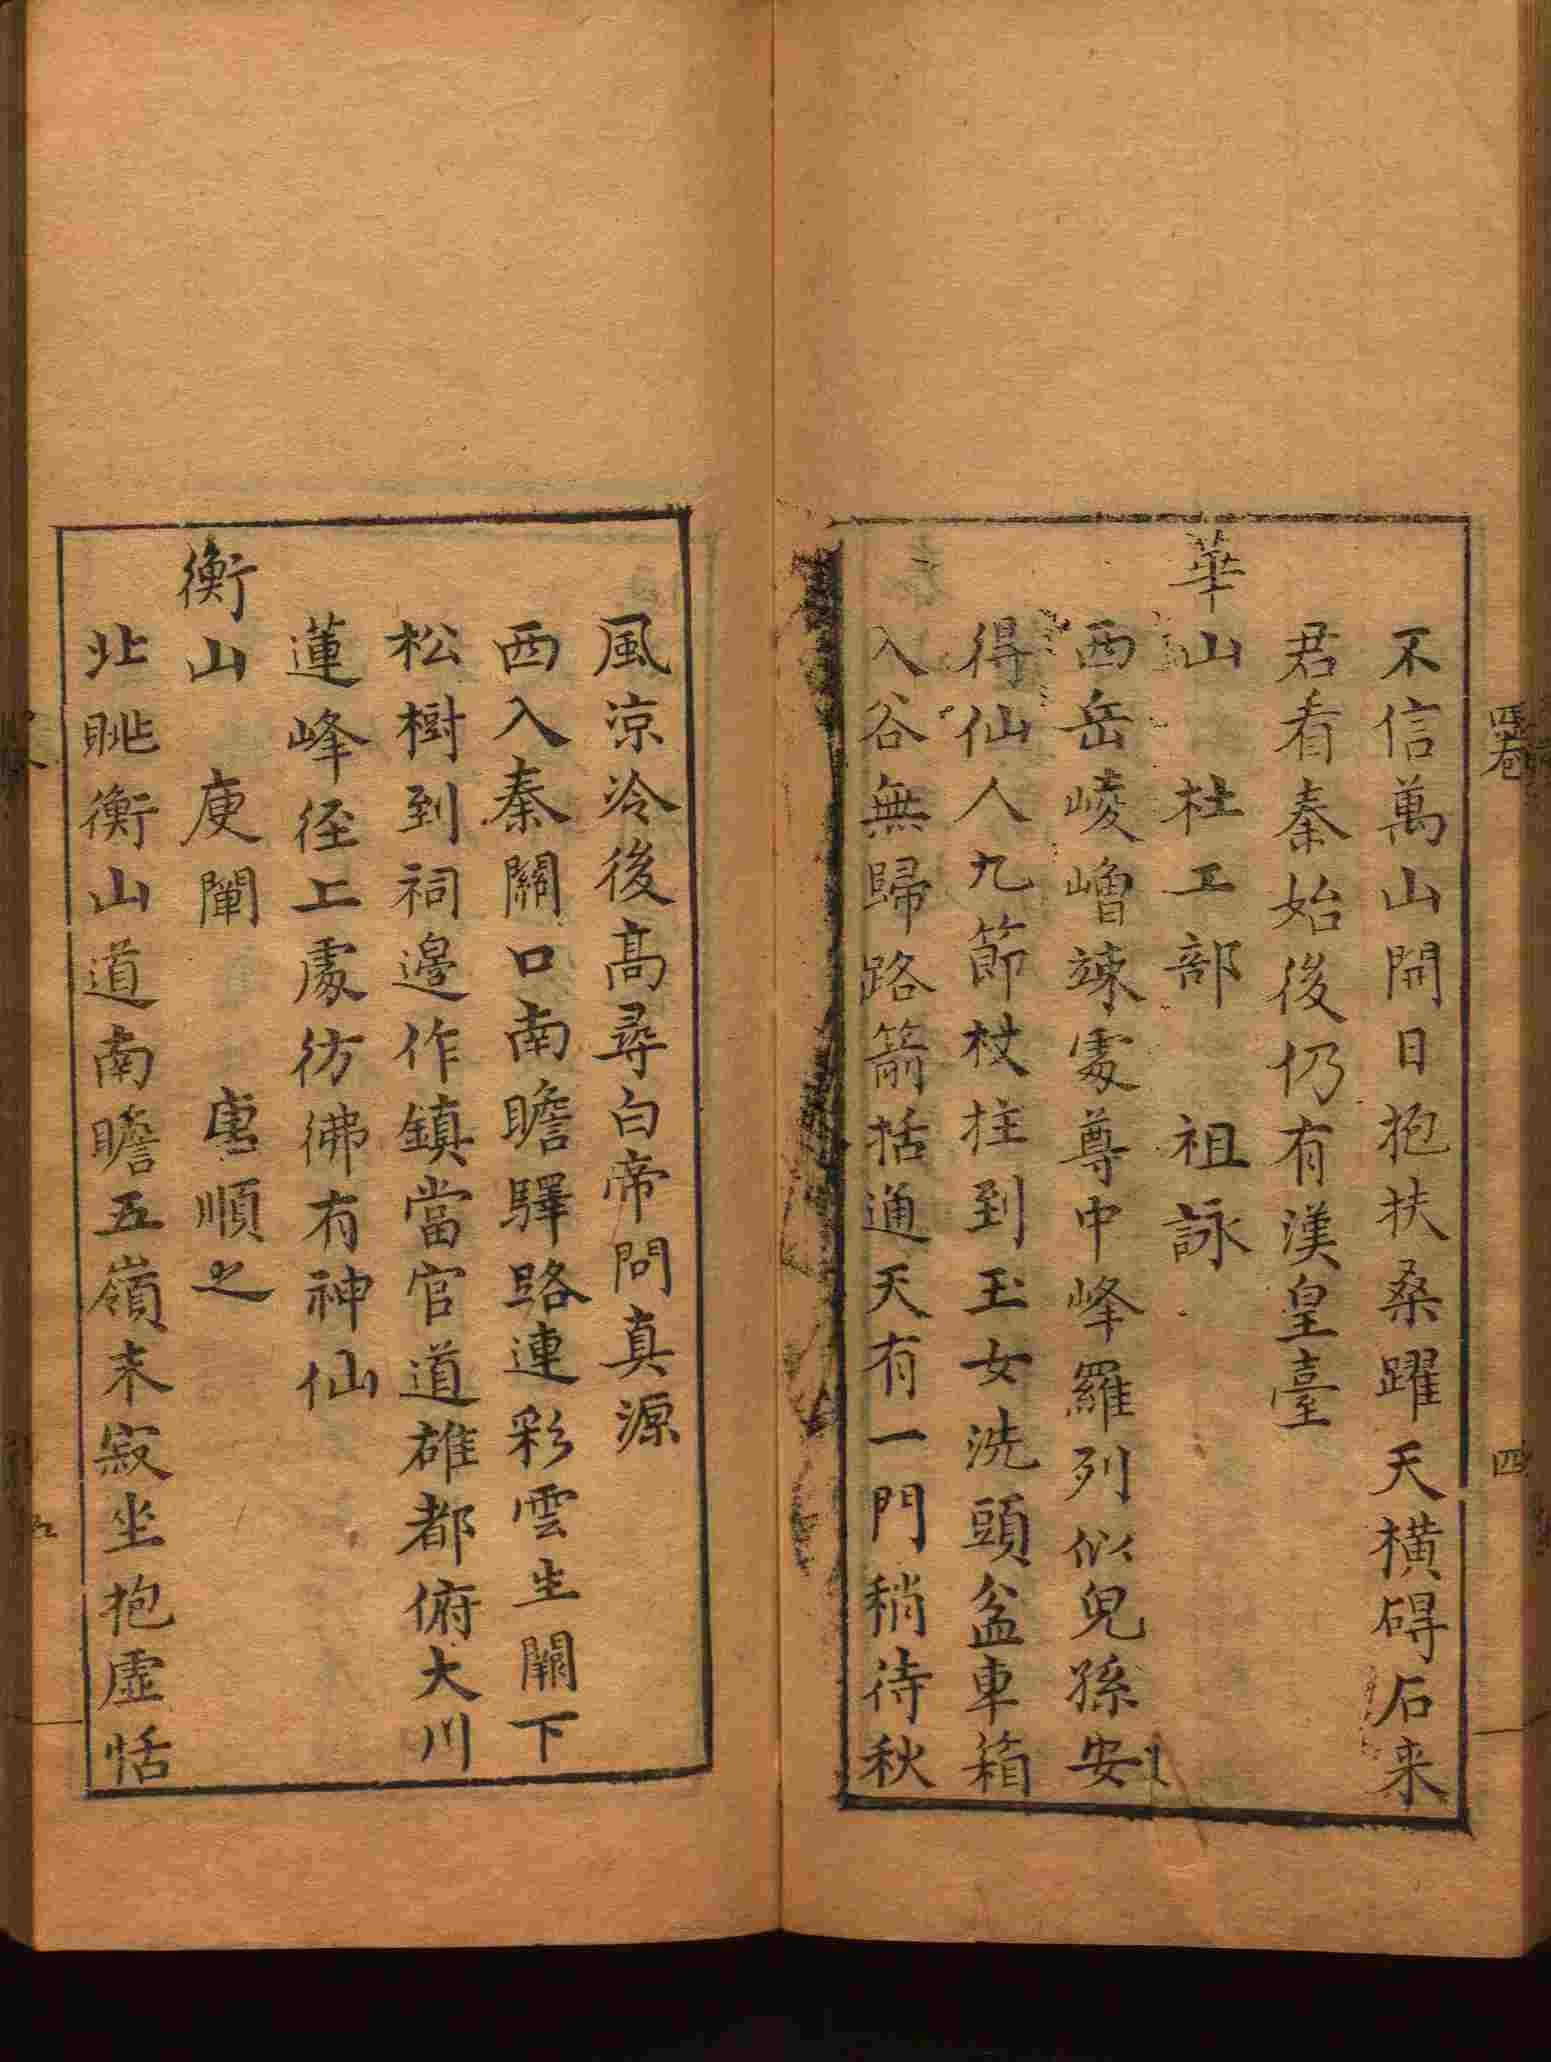 不信萬山開日抱扶桑躍天橫碍石来
君看秦始後仍有漢皇臺
華山　杜工部　祖詠
西岳崚嶒竦處尊中峰羅列似兒孫安
得仙人九節杖拄到玉女洗頭盆車箱
入谷無歸路箭括通天有一門稍待秋
風凉冷後高尋白帝問真源
西入秦關口南瞻驛路連彩雲生關下
松樹到祠邊作鎮當官道雄都俯大川
蓮峰徑上處彷彿有神仙
衡山　庾闡　唐順之
北眺衡山道南瞻五嶺末寂坐抱虛恬
四卷
四